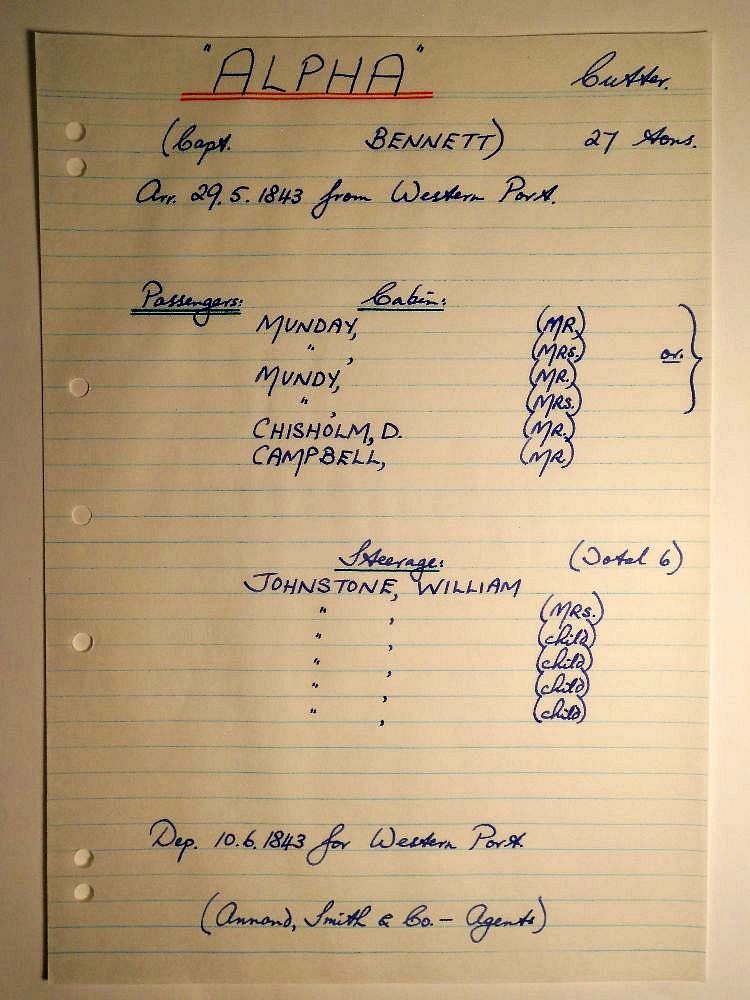 "ALPHA" Cutter.
(Capt. BENNETT) 27 tons.
Arr. 29.5.1843 from Western Port.
Passengers: Cabin:
MUNDAY, (MR.)
" , (MRS.)
or.
MUNDY, (MR.)
" , (MRS.)
CHISHOLM, D. (MR.)
CAMPBELL, (MR.)
Steerage: (Total 6)
JOHNSTONE, WILLIAM
" , (MRS.)
" , (child)
" , (child)
" , (child)
" , (child)
Dep. 10.6.1843 for Western Port.
(Annand, Smith & Co. – Agents)